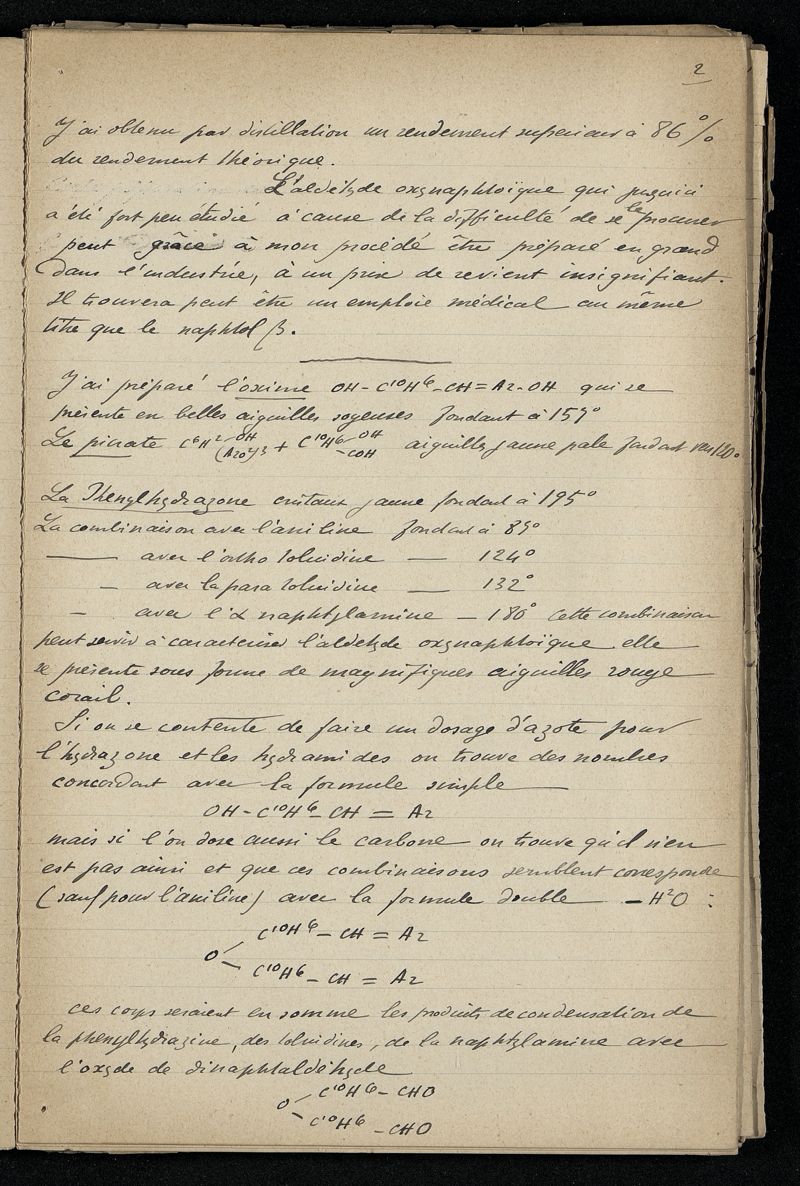 2
J'ai obtenu par distillation un rendement superieur à 86 %
du rendement théorique.
L'aldéhyde oxynaphtoïque qui jusqu'ici
a été fort peu étudié à cause de la difficulté de se le procurer
peut grâce à mon procédé être préparé en grand
dans l'industrie, à un prix de revient insignifiant.
Il trouvera peut être un emploie médical au même
titre que le naphtol β.
J'ai préparé l'oxime OH - C¹⁰H⁶ - CH = Az - OH qui se
présente en belles aiguilles soyeuses fondant à 159°
Le picrate C⁶H² OH (Az O²)³ + C¹⁰H⁶ - OH - COH aiguilles jaune pale fondant vers 120°
La Phenylhydrazone cristaux jaune fondant à 195°
La combinaison avec l'aniline fondant à 89°
—— avec l'ortho toluidine — 124°
— avec la para toluidine — 132°
— avec l'α naphtylamine — 180° cette combinaison
peut servir à caracteriser l'aldehyde oxynaphtoïque elle
se présente sous forme de magnifiques aiguilles rouge
corail.
Si on se contente de faire un dosage d'azote pour
l'hydrazone et les hydramides on trouve des nombres
concordant avec la formule simple
OH - C¹⁰H⁶ - CH = Az
mais si l'on dose aussi le carbone on trouve qu'il n'en
est pas ainsi et que ces combinaisons semblent correspondre
(sauf pour l'aniline) avec la formule double - H²O :
C¹⁰H⁶ - CH = Az
O
C¹⁰H⁶ - CH = Az
ces corps seraient en somme les produits de condensation de
la phenylhydrazine, des toluidines, de la naphtylamine avec
l'oxyde de dinaphtaldéhyde
C¹⁰H⁶ - CHO
O
C¹⁰H⁶ - CHO